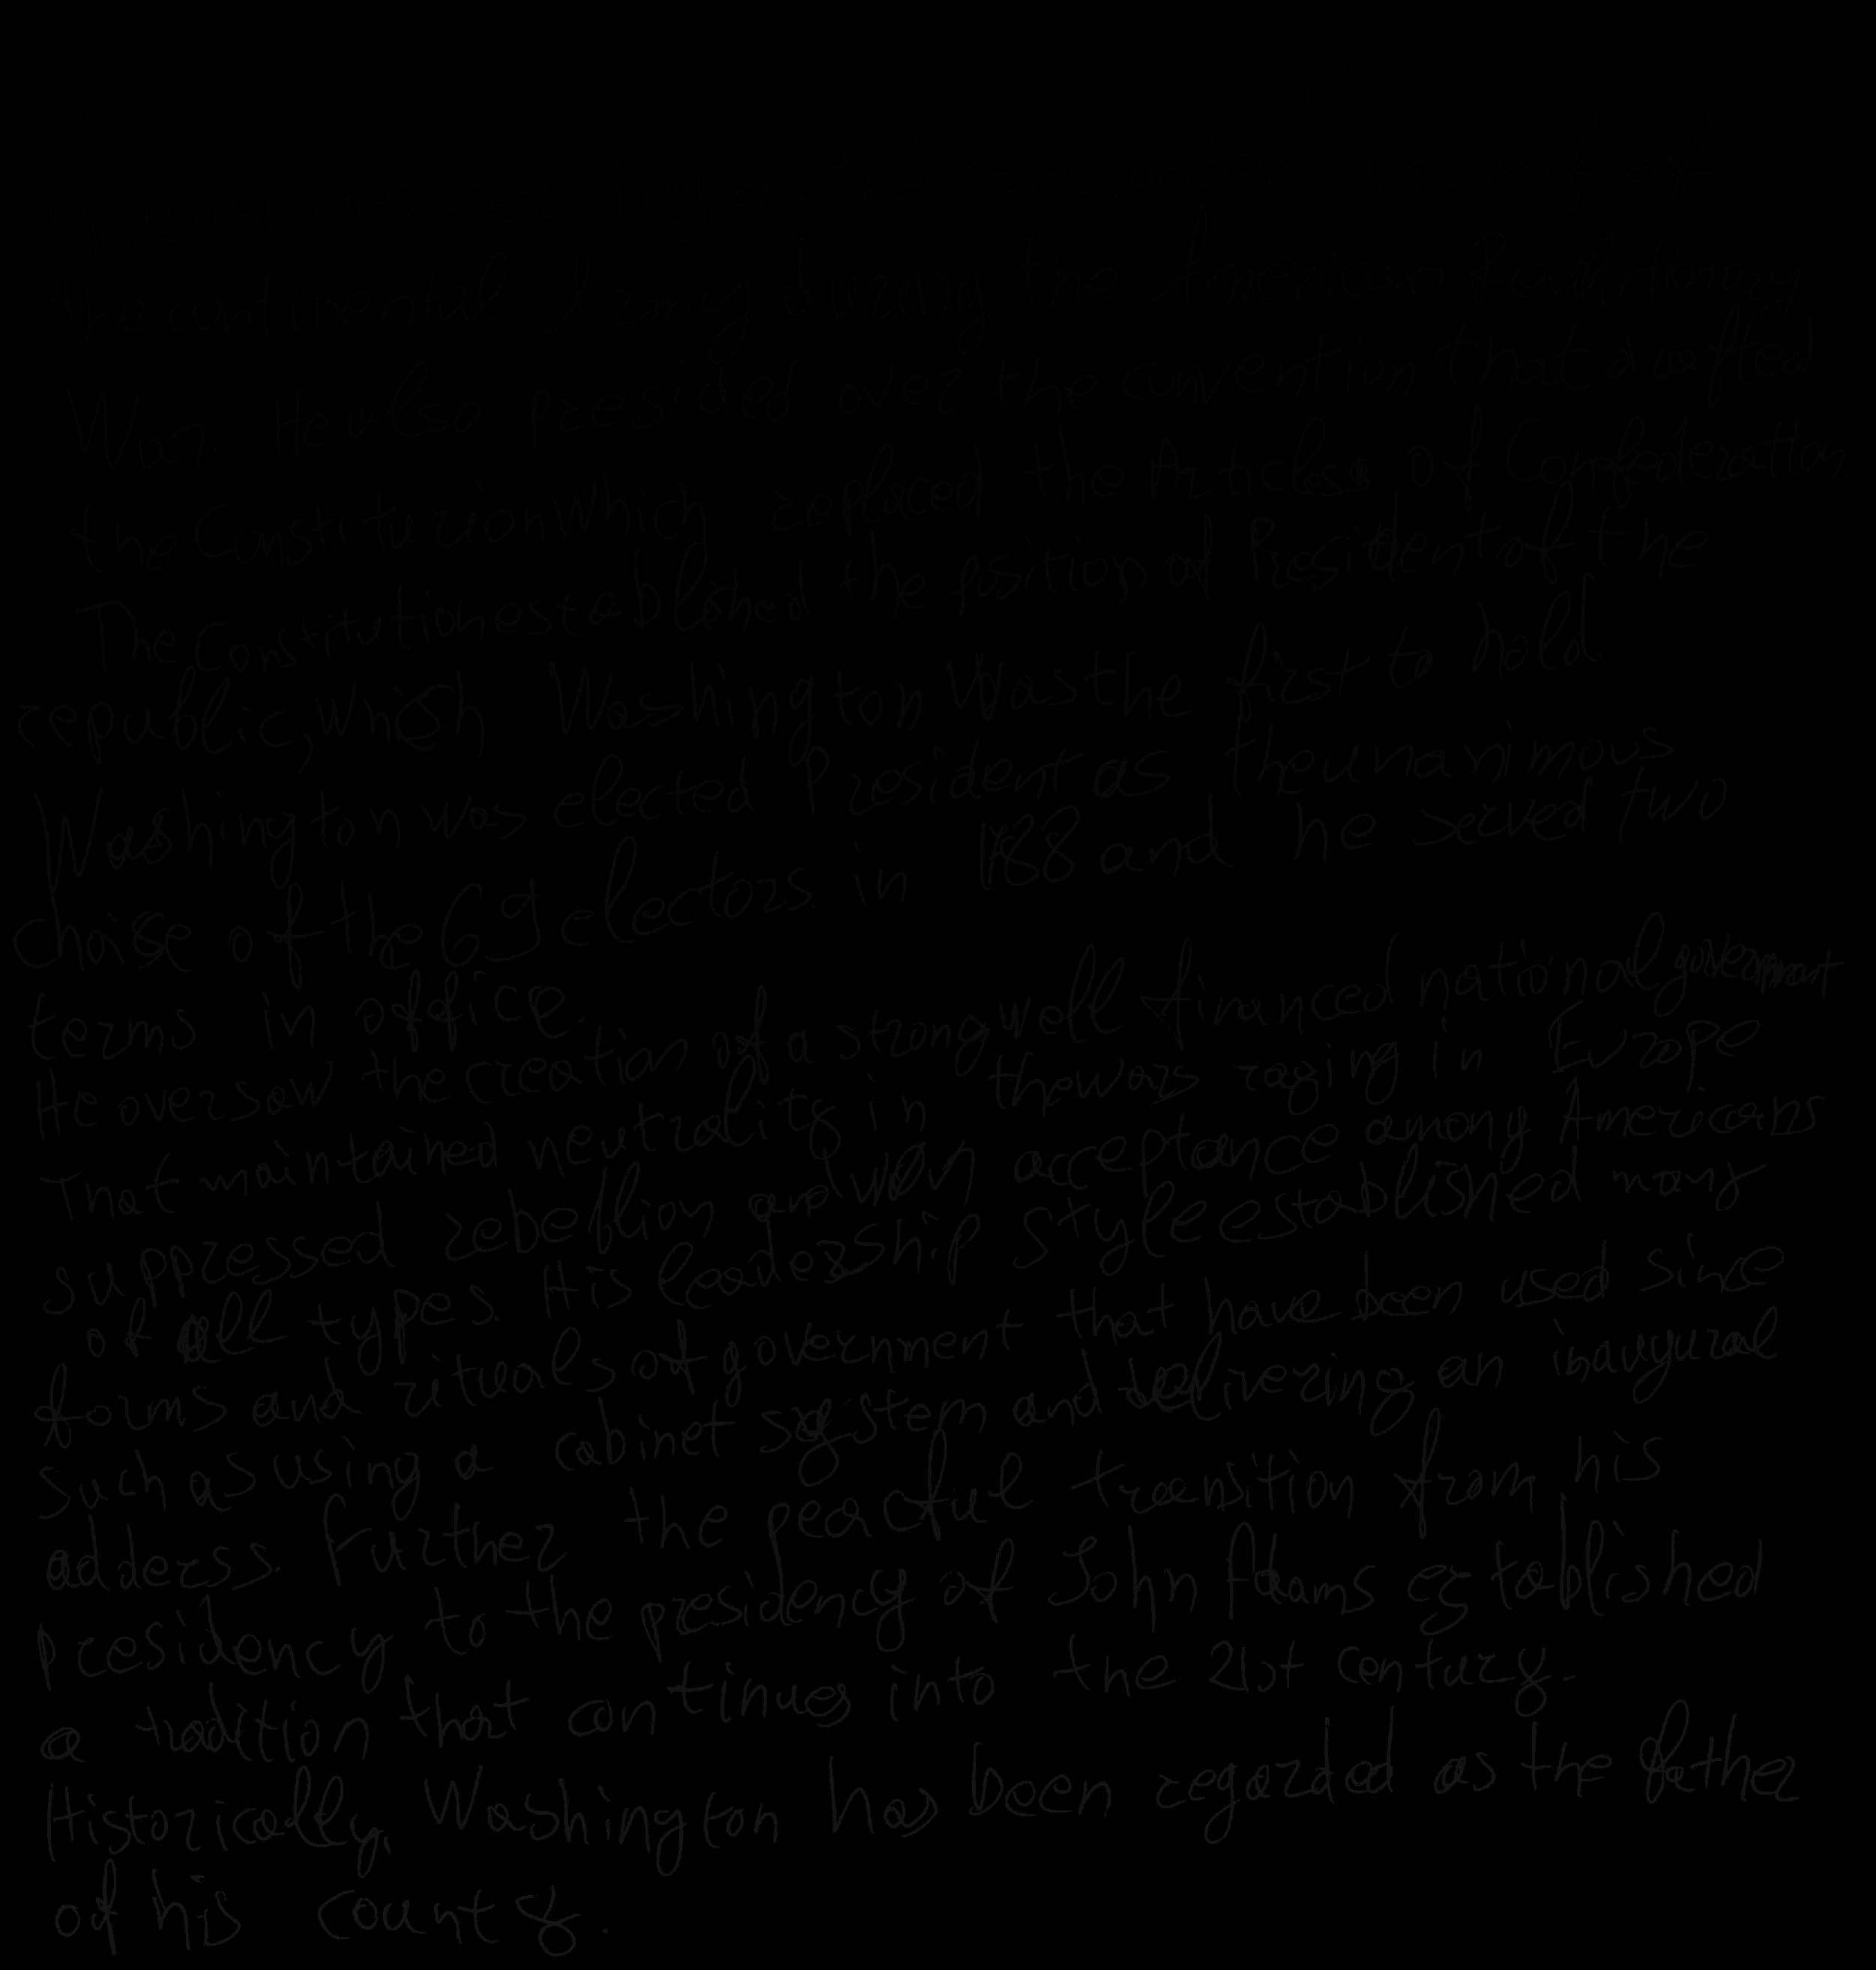 United states serving as the commander in chif of
the continental Army during the American Revolutionary
War. He also presided over the convention that drafted
the Constituzion which replaced the Articles of Confederation.
The Constitution established the position of President of the
republic, which Washington was the first to hold.
Washington was elected President as the unanimous
choise of the 69 electors in 1788 and he served two
terms in office.
He oversaw the creation of a strong well financed national government
That maintained neutrality in the wars raging in Europe
suppressed rebellion and won acceptance among Americans
of all types. His leadership style established many
forms and rituals of government that have been used since
such as using a cabinet system and delivering an inaugural
adderss. Further the peacful transition from his
presidency to the presidency of John Adams established
a tradition that continues into the 21st century.
Historically, Washington has been regarded as the father
of his county.